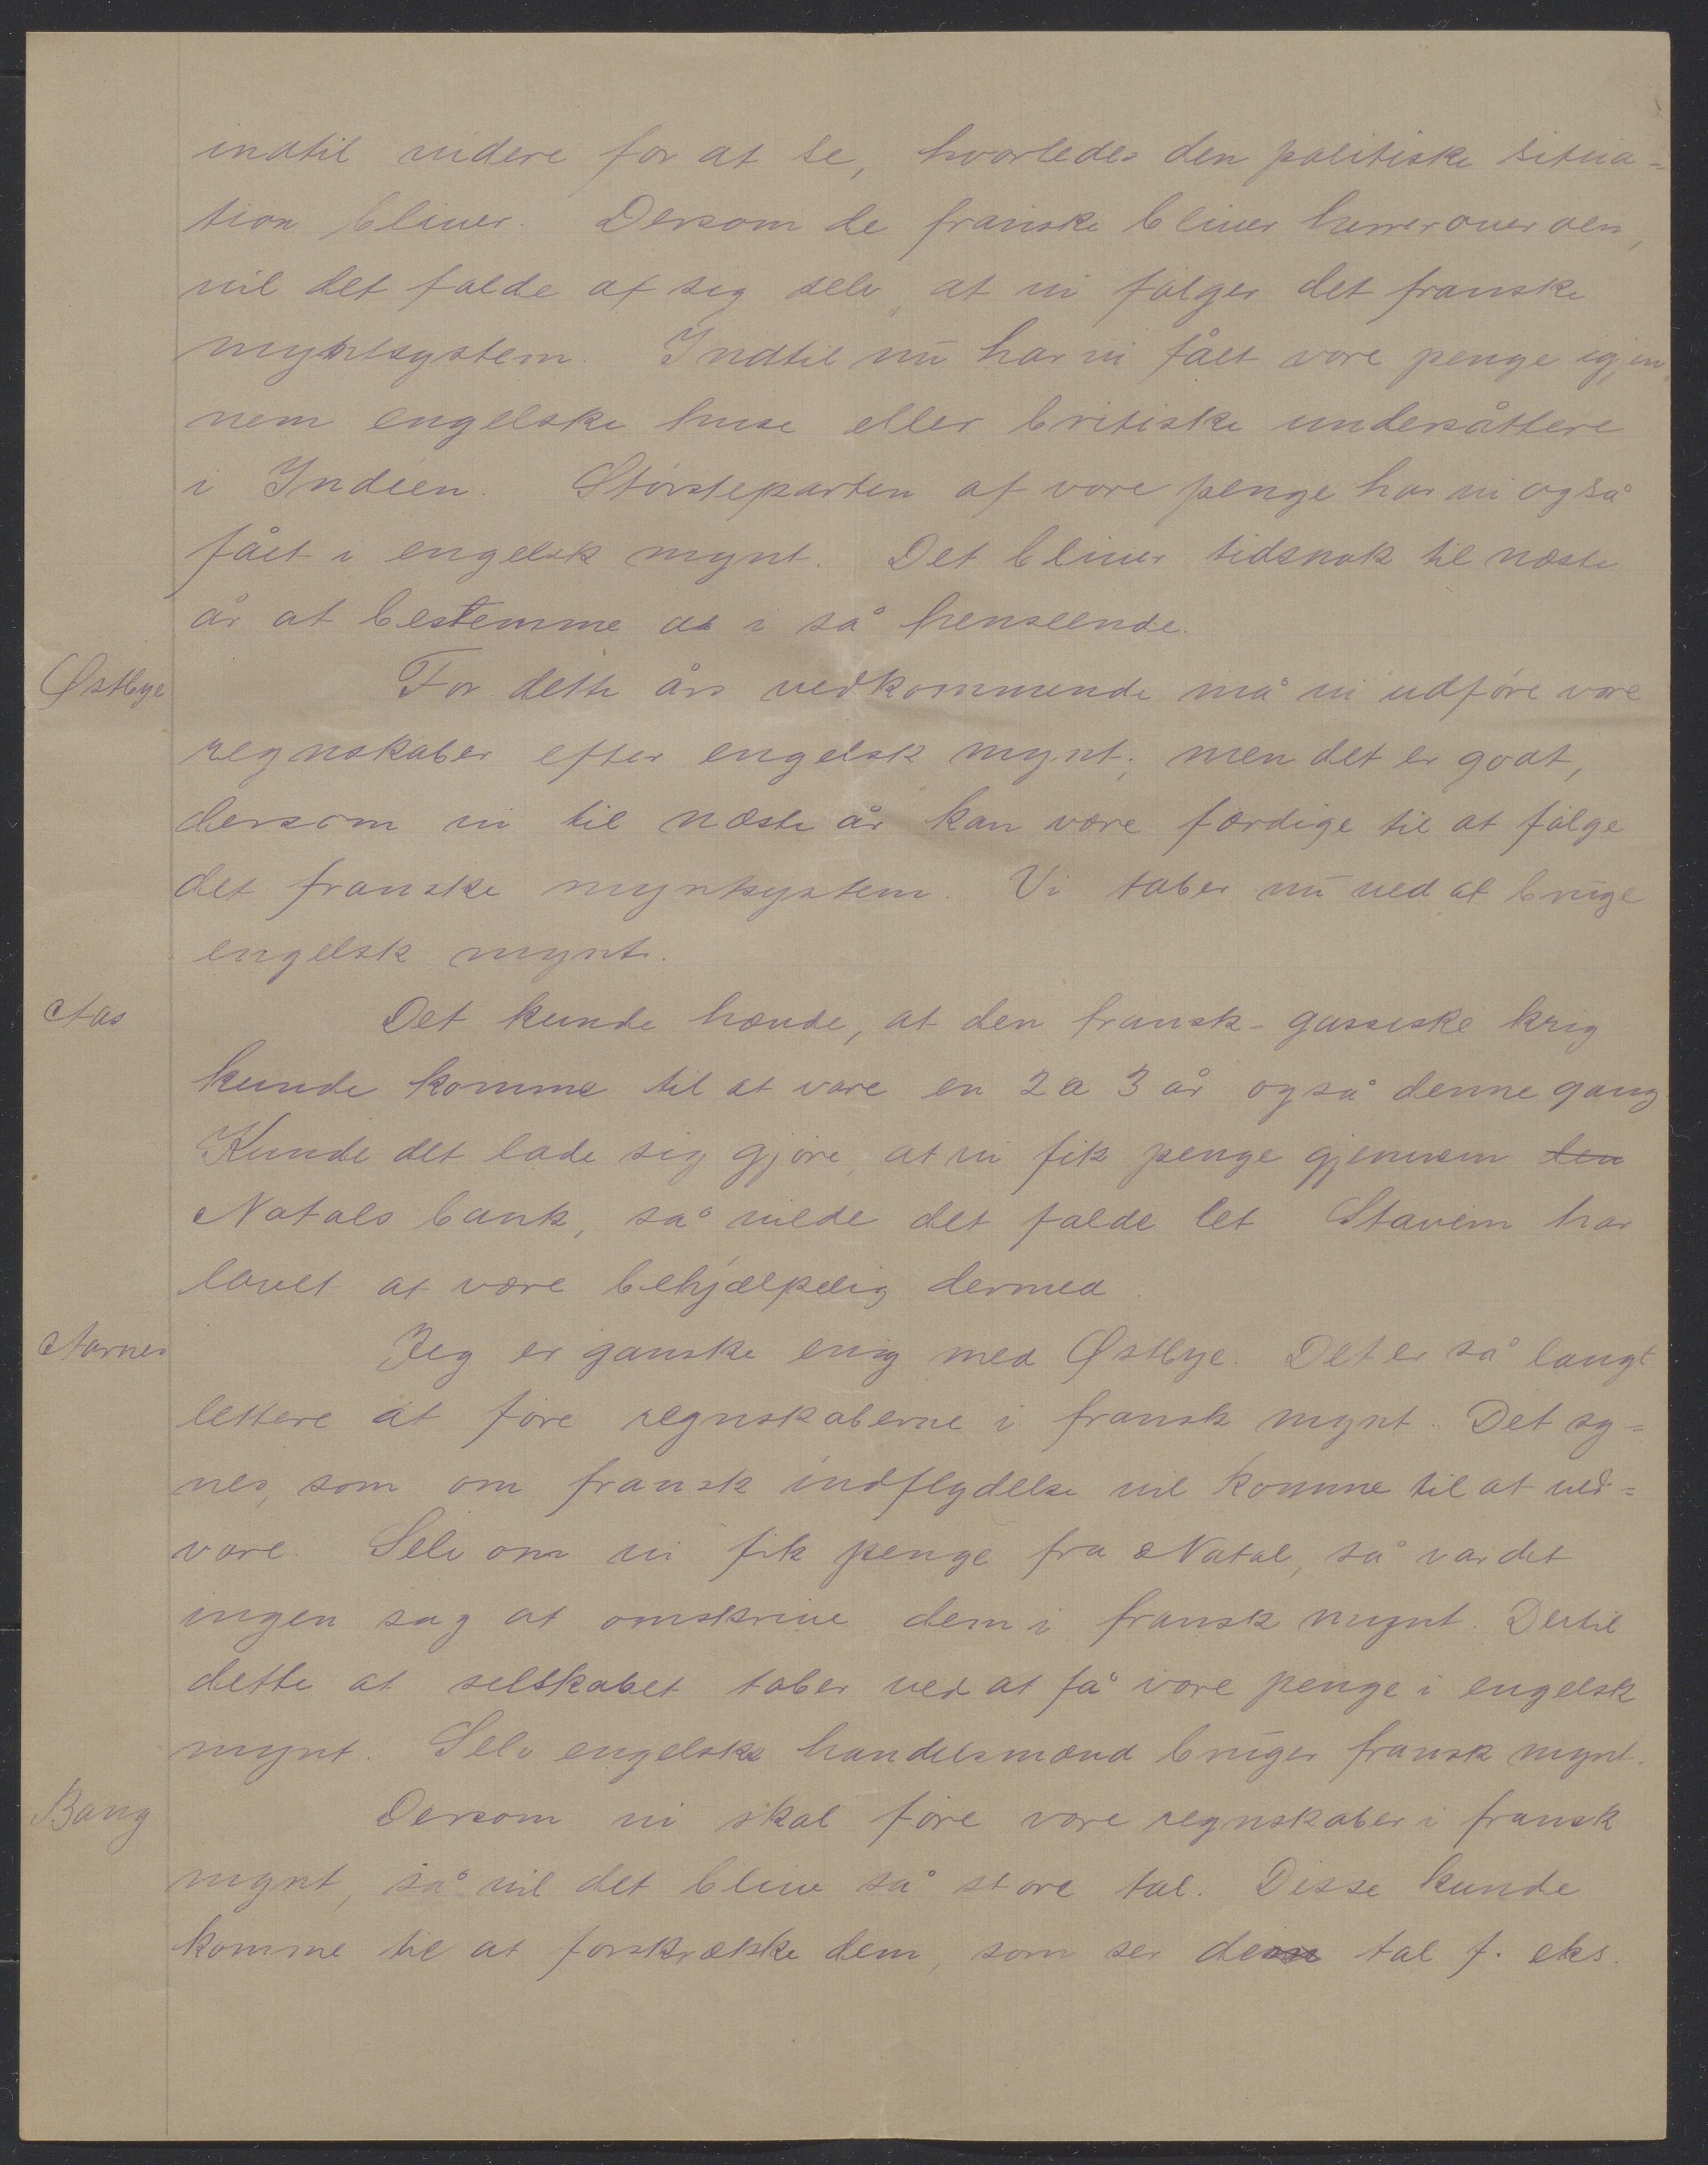 indtil videre for at se, hvorledes den politiske situa=
tion bliver. Dersom de franske bliver herrer over øen,
vil det falde af sig selv, at vi følger det franske
myntsystem. Indtil nu har vi fået vore penge igjen=
nem engelske huse eller britiske undersåttere
i Indien. Størsteparten af vore penge har vi også
fået i engelsk mynt. Det bliver tidsnok til næste
år at bestemme os i så henseende.
Østbye For dette års vedkommende må vi udføre vore
regnskaber efter engelsk mynt; men det er godt,
dersom vi til næste år kan være færdige til at følge
det franske myntsystem. Vi taber nu ved at bruge
engelsk mynt.
Aas Det kunde hænde, at den fransk-gassiske krig
kunde komme til at vare en 2 a 3 år også denne gang.
Kunde det lade sig gjøre, at vi fik penge gjennem den
Natals bank, så vilde det falde let. Stavem har
lovet at være behjælpelig dermed.
Aarnes Jeg er ganske enig med Østbye. Det er så langt
lettere at føre regnskaberne i fransk mynt. Det sy=
nes, som om fransk indflydelse vil komme til at ved=
vare. Selv om vi fik penge fra Natal, så var det
ingen sag at omskrive dem i fransk mynt. Dertil
dette at selskabet taber ved at få vore penge i engelsk
mynt. Selv engelske handelsmænd bruger fransk mynt.
Bang Dersom vi skal føre vore regnskaber i fransk
mynt, så vil det blive så store tal. Disse kunde
komme til at forskrække dem, som ser tal f. eks.